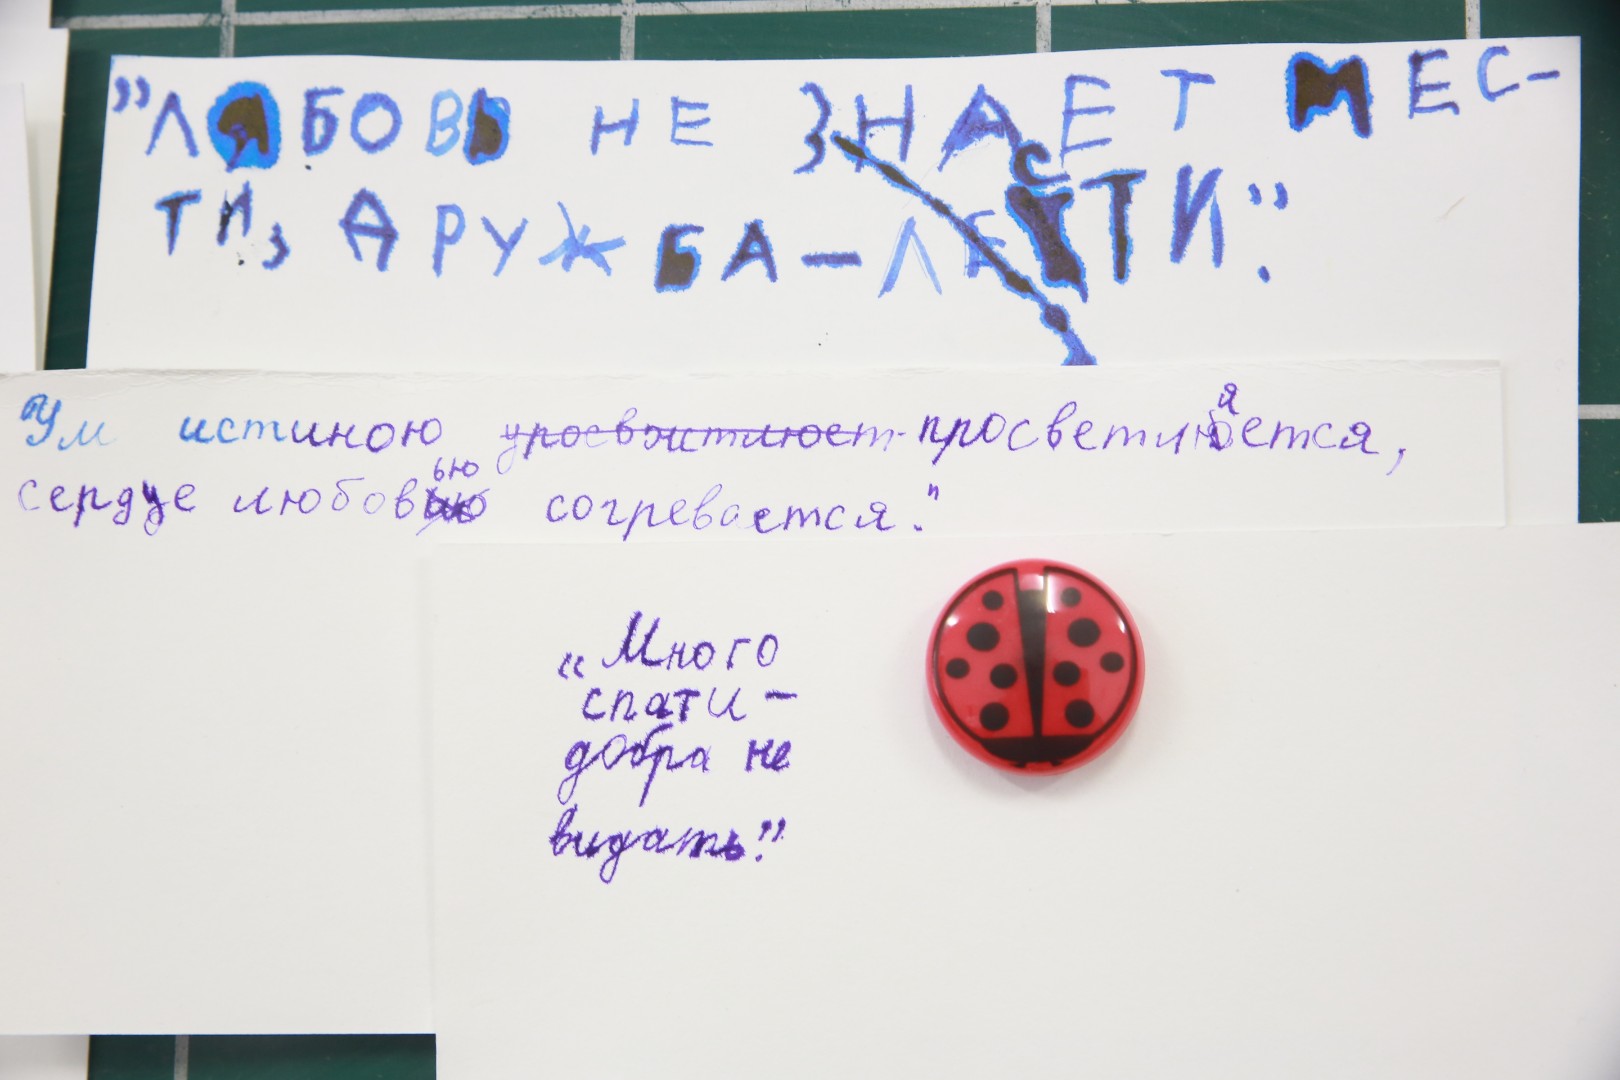 "ЛЯБОВЬ НЕ ЗНАЕТ МЕС-
ТИ, ДРУЖБА – ЛЕСТИ".
"Ум истиною просветляется,
сердце любовью согревается."
„Много
спати –
добра не
видать."